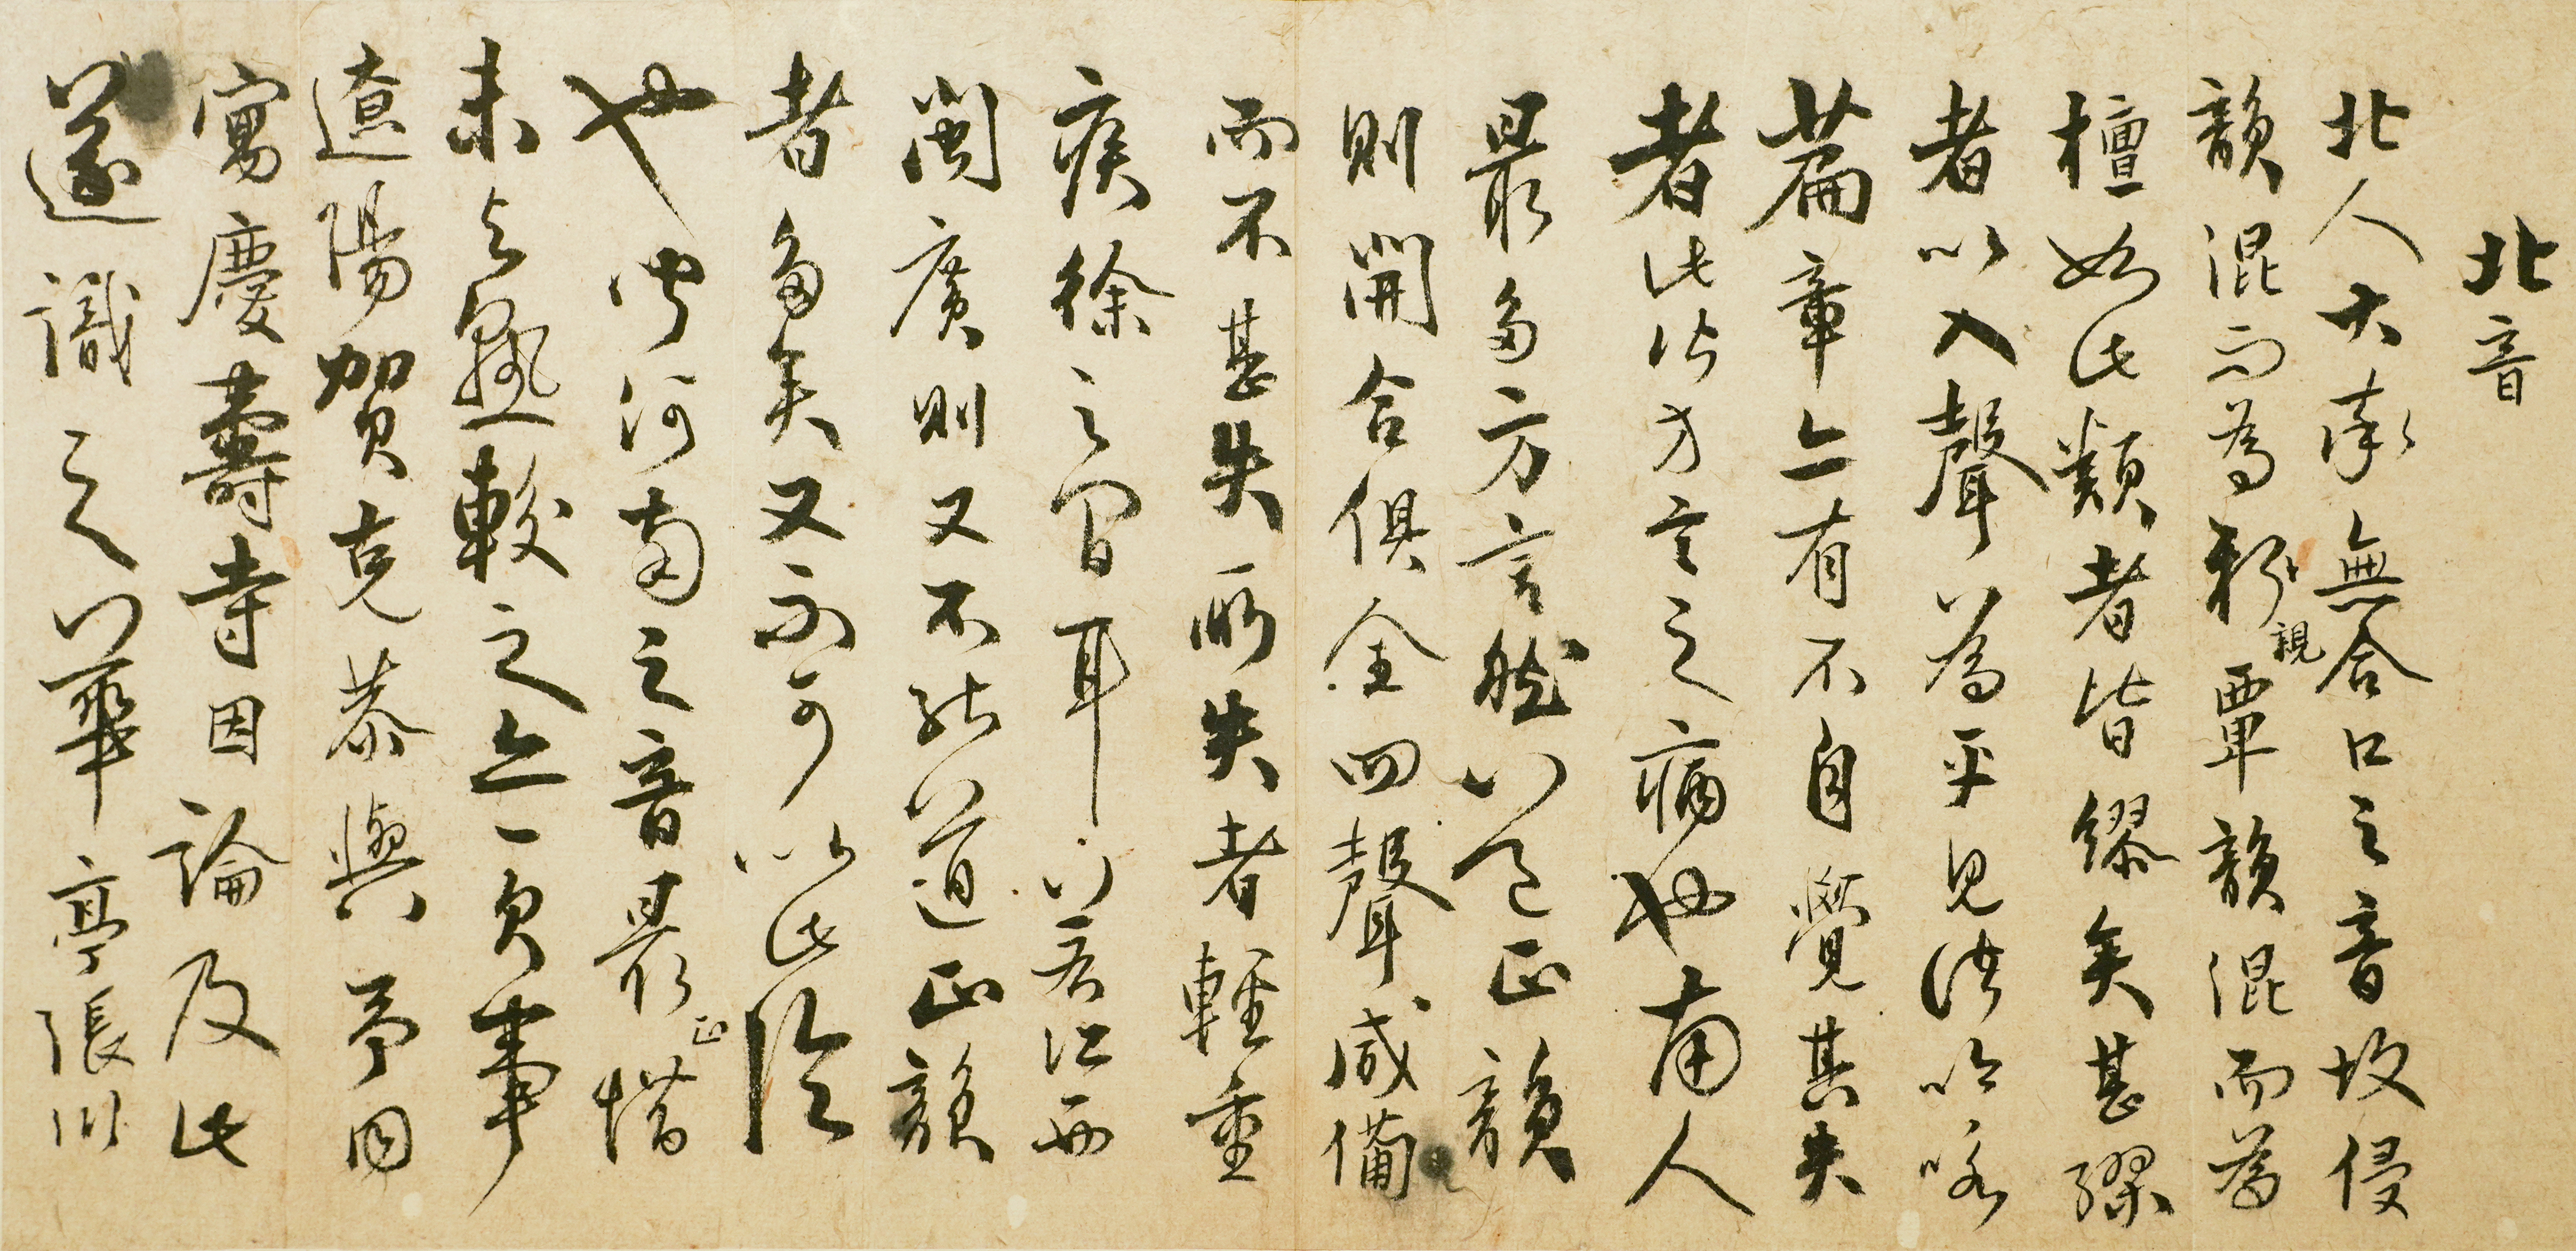 北音
北人大率無合口之音故侵
韻混而為親覃韻混而為
檀如此類者皆繆矣甚繆
者以入聲為平見諸吟咏
篇章亦有不自覺其失
者此皆方言之病也南人
最多方言然以之正韻
則開合俱全四聲咸備
而不甚失所失者輕重
疾徐之間耳若江西
閩廣則又不能道正韻
者多矣又不可以此論
也中河南之音最正惜
未與熟較之亦一欠事
遼陽賀克恭與予同
寓慶壽寺因論及此
遂識之華亭張